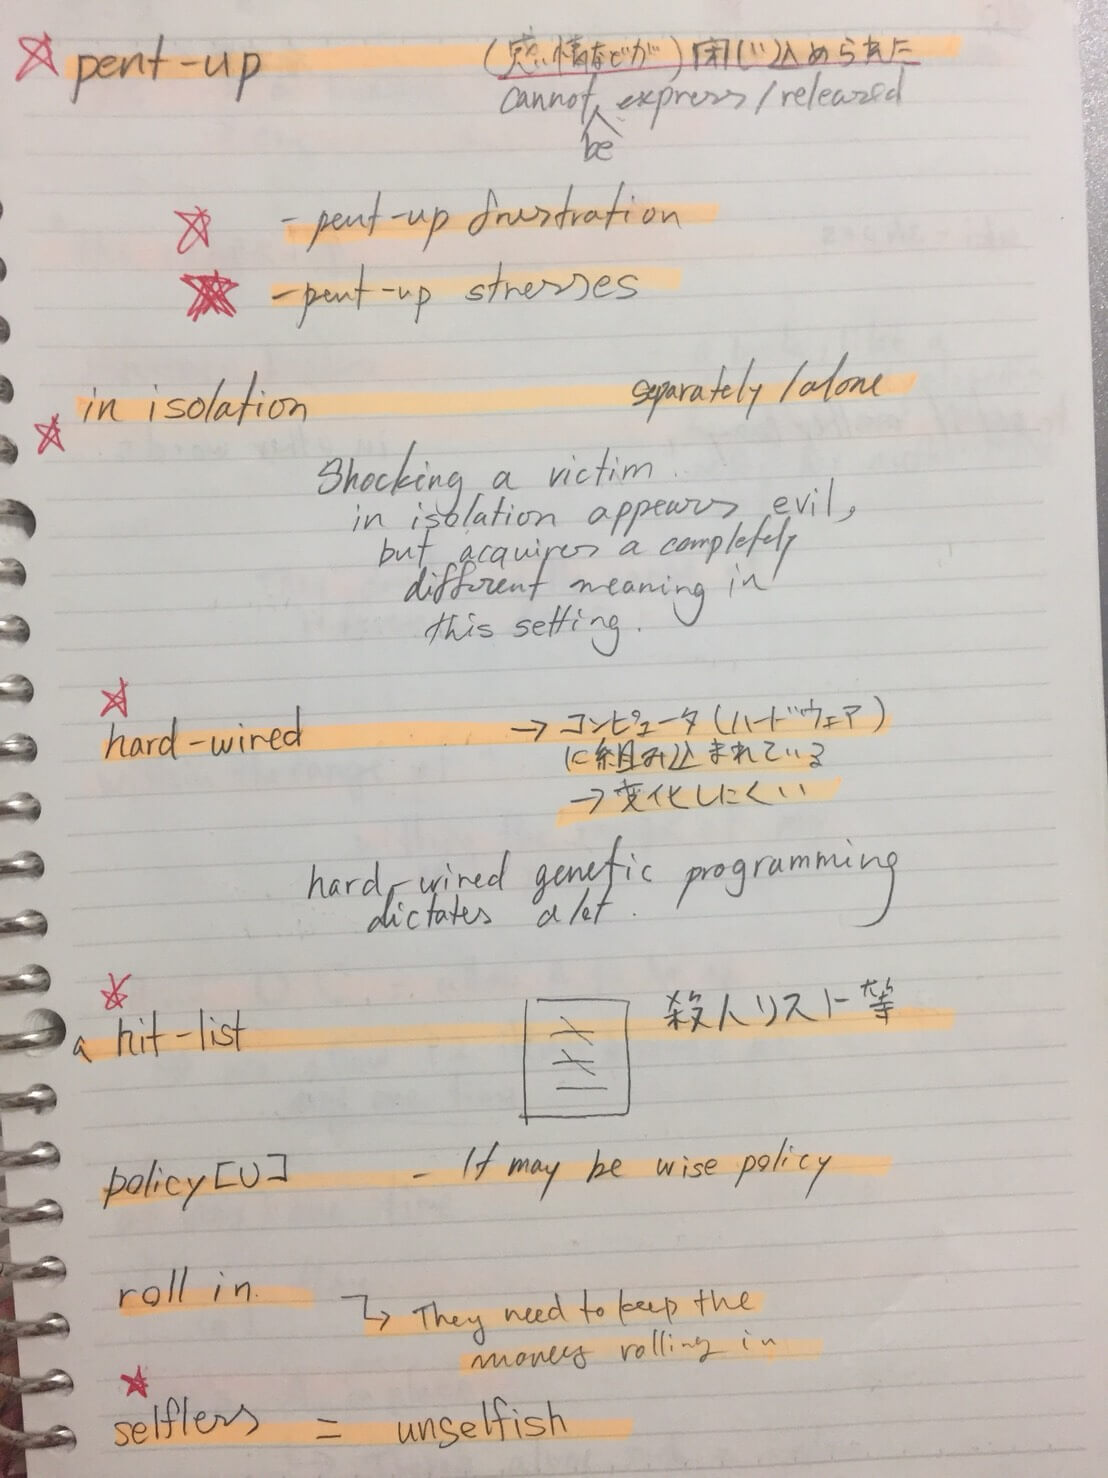 pent-up (感情などが)閉じ込められた
cannot express/released
be
- pent-up frustration
- pent-up stresses
in isolation separately/alone
Shocking a victim
in isolation appears evil,
but acquires a completely
different meaning in
this setting.
hard-wired → コンピュータ(ハードウェア)
に組み込まれている
→ 変化しにくい
hard-wired genetic programming
dictates a lot.
a hit-list 殺人リスト等
policy[U] - It may be wise policy
roll in.
They need to keep the
money rolling in
selfless = unselfish